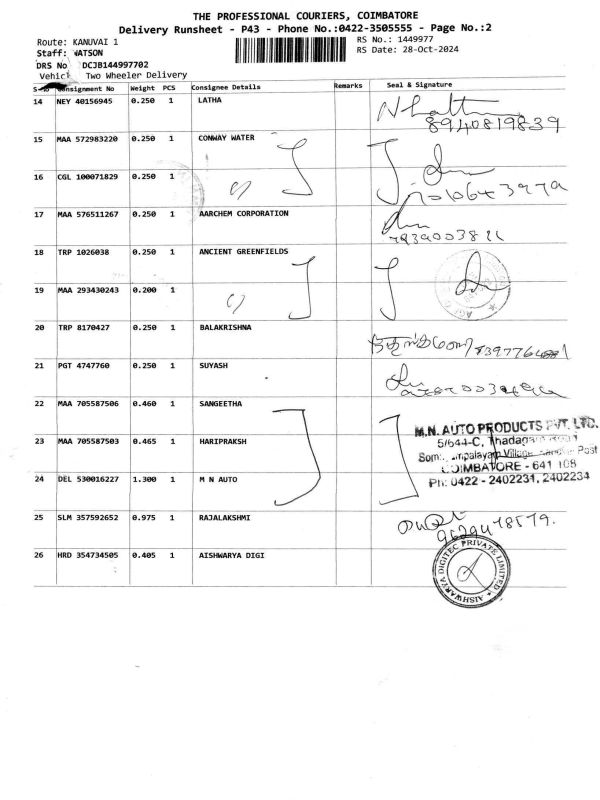 THE PROFESSIONAL COURIERS, COIMBATORE
Delivery Runsheet - P43 - Phone No.:0422-3505555 - Page No.:2
Route: KANUVAI 1
RS No.: 1449977
Staff: WATSON
RS Date: 28-Oct-2024
DRS No DCJB144997702
Vehicl Two Wheeler Delivery
Consignment No Weight PCS Consignee Details Remarks Seal & Signature
14 NEY 40156945 0.250 1 LATHA
8940819839
15 MAA 572983220 0.250 1 CONWAY WATER
16 CGL 100071829 0.250 1
17 MAA 576511267 0.250 1 AARCHEM CORPORATION
18 TRP 1026038 0.250 1 ANCIENT GREENFIELDS
19 MAA 293430243 0.200 1
20 TRP 8170427 0.250 1 BALAKRISHNA
21 PGT 4747760 0.250 1 SUYASH
22 MAA 705587506 0.460 1 SANGEETHA
M.N. AUTO PRODUCTS PVT. LTD.
23 MAA 705587503 0.465 1 HARIPRAKSH
5/644-C, Thadagam Road
Village, Post
COIMBATORE - 641 108
24 DEL 530016227 1.300 1 M N AUTO
Ph: 0422 - 2402231, 2402234
25 SLM 357592652 0.975 1 RAJALAKSHMI
9629478579.
26 HRD 354734505 0.405 1 AISHWARYA DIGI
AISHWARYA DIGITEC PRIVATE LIMITED